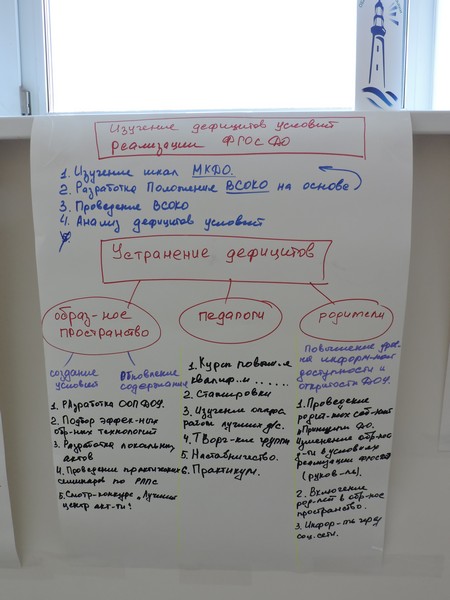 Изучение дефицитов условий
реализации ФГОС ДО
1. Изучение шкал МКДО.
2. Разработка Положение ВСОКО на основе
3. Проведение ВСОКО
4. Анализ дефицитов условий
Устранение дефицитов
образ-ное
пространство
создание
условий
обновление
содержания
1. Разработка ООП ДОУ.
2. Подбор эффек-ных
обр-ных технологий
3. Разработка локальных
актов
4. Проведение практических
семинаров по РППС
5. Смотр-конкурс „Лучший
центр акт-ти"
педагоги
1. Курсы повыш-я
квалиф-и ......
2. Стажировки
3. Изучение опыта
работы лучших д/с.
4. Творч-кие группы
5. Наставничество.
6. Практикум.
родители
Повышение уров.
на информ-ной
доступности и
открытости ДОУ.
1. Проведение
родит-ких соб-ний
„Принципы ДО.
Изменение обр-ной
в условиях
реализации ФГОС ДО
(руков-ль).
2. Включение
род-лей в обр-ное
пространство.
3. Инфор-
соц. сети.